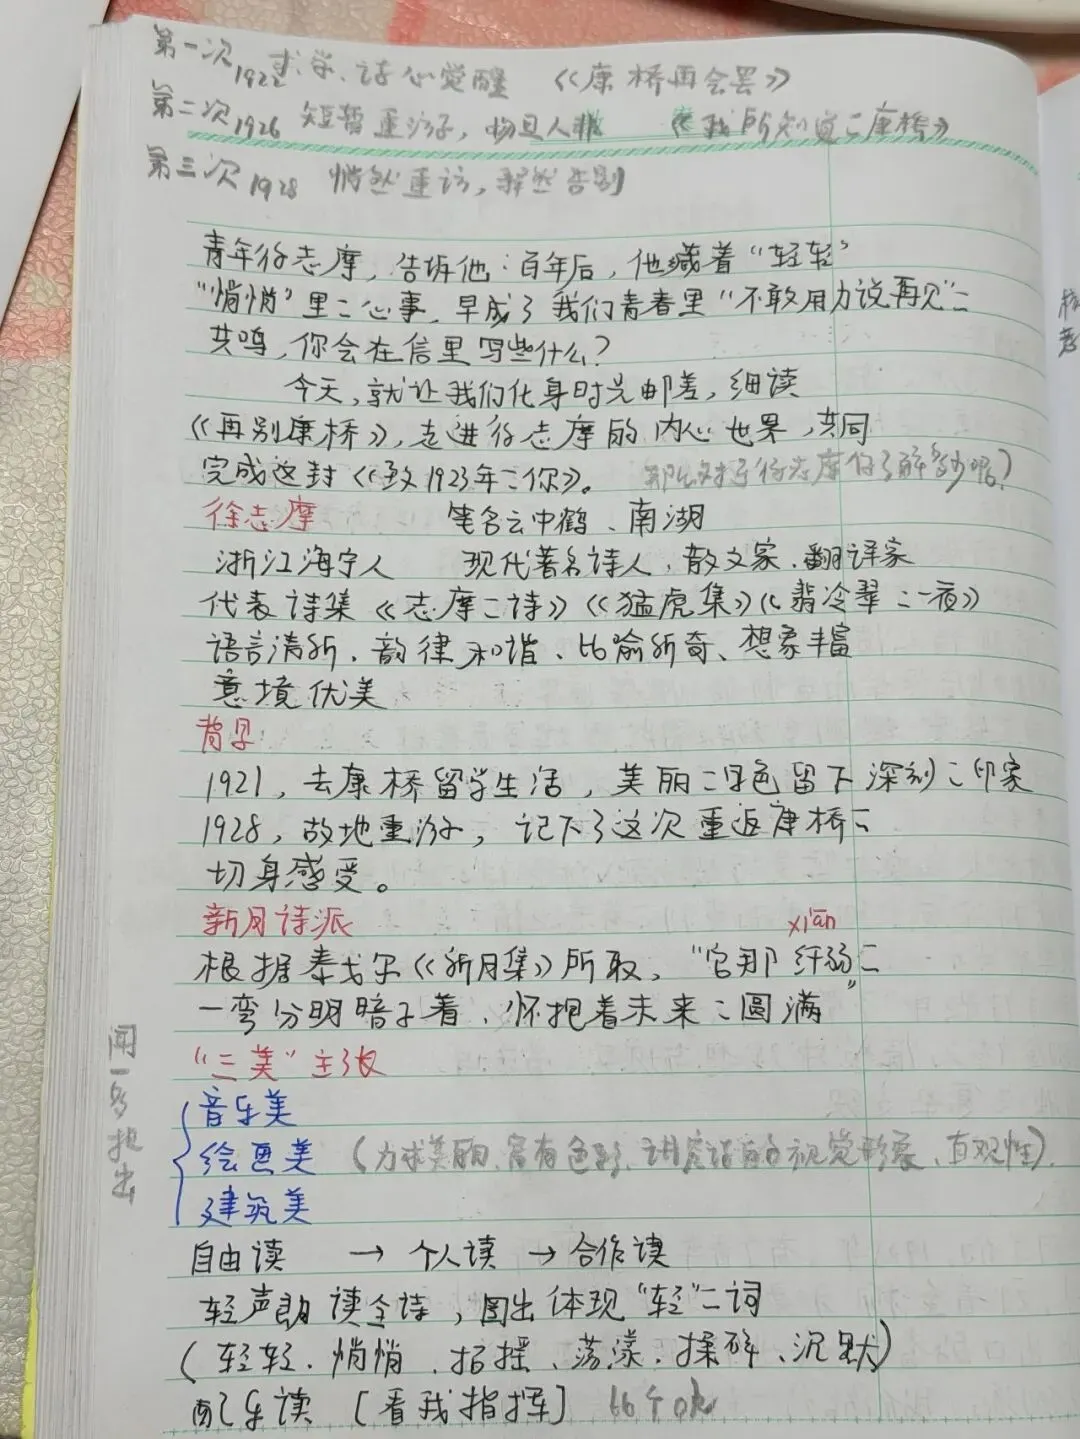 第一次1922 求学、诗心觉醒 《康桥再会罢》
第二次1926 短暂重游,物是人非 《我所知道二康桥》
第三次1928 悄然重访,黯然告别
青年徐志摩,告诉他:百年后,他藏着“轻轻”
“悄悄”里二心事,早成了我们青春里“不敢用力说再见”二
共鸣,你会在信里写些什么?
今天,就让我们化身时光邮差,细读
《再别康桥》,走进徐志摩的内心世界,共同
完成这封《致1923年二你》。 那么对于徐志摩你了解多少呢?
徐志摩 笔名云中鹤、南湖
浙江海宁人 现代著名诗人,散文家、翻译家
代表诗集《志摩二诗》《猛虎集》《翡冷翠二一夜》
语言清新、韵律和谐、比喻新奇、想象丰富
意境优美
背景
1921,去康桥留学生活,美丽二景色留下深刻二印象
1928,故地重游,记下了这次重返康桥二
切身感受。
新月诗派
xiān
根据泰戈尔《新月集》所取,“它那纤弱二
一弯分明暗示着、怀抱着未来二圆满”
“三美”主张
闻一多提出
音乐美
绘画美(力求美丽、富有色彩、讲究诗的视觉形象、直观性)
建筑美
自由读 → 个人读 → 合作读
轻声朗读全诗,圈出体现“轻”二词
(轻轻、悄悄、招摇、荡漾、揉碎、沉默)
配乐读 [看我指挥]